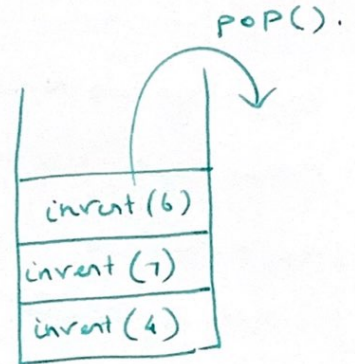 pop().
invent(6)
invent(7)
invent(4)